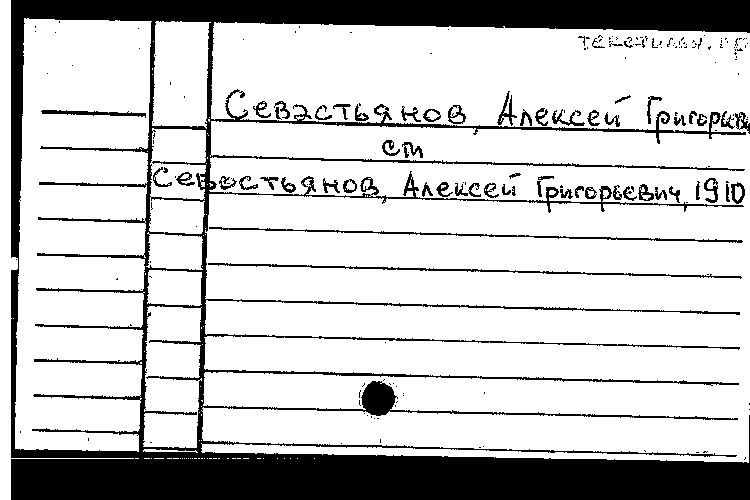 текстильн. пр
Севастьянов, Алексей Григорьеви
см
Севостьянов, Алексей Григорьевич, 1910